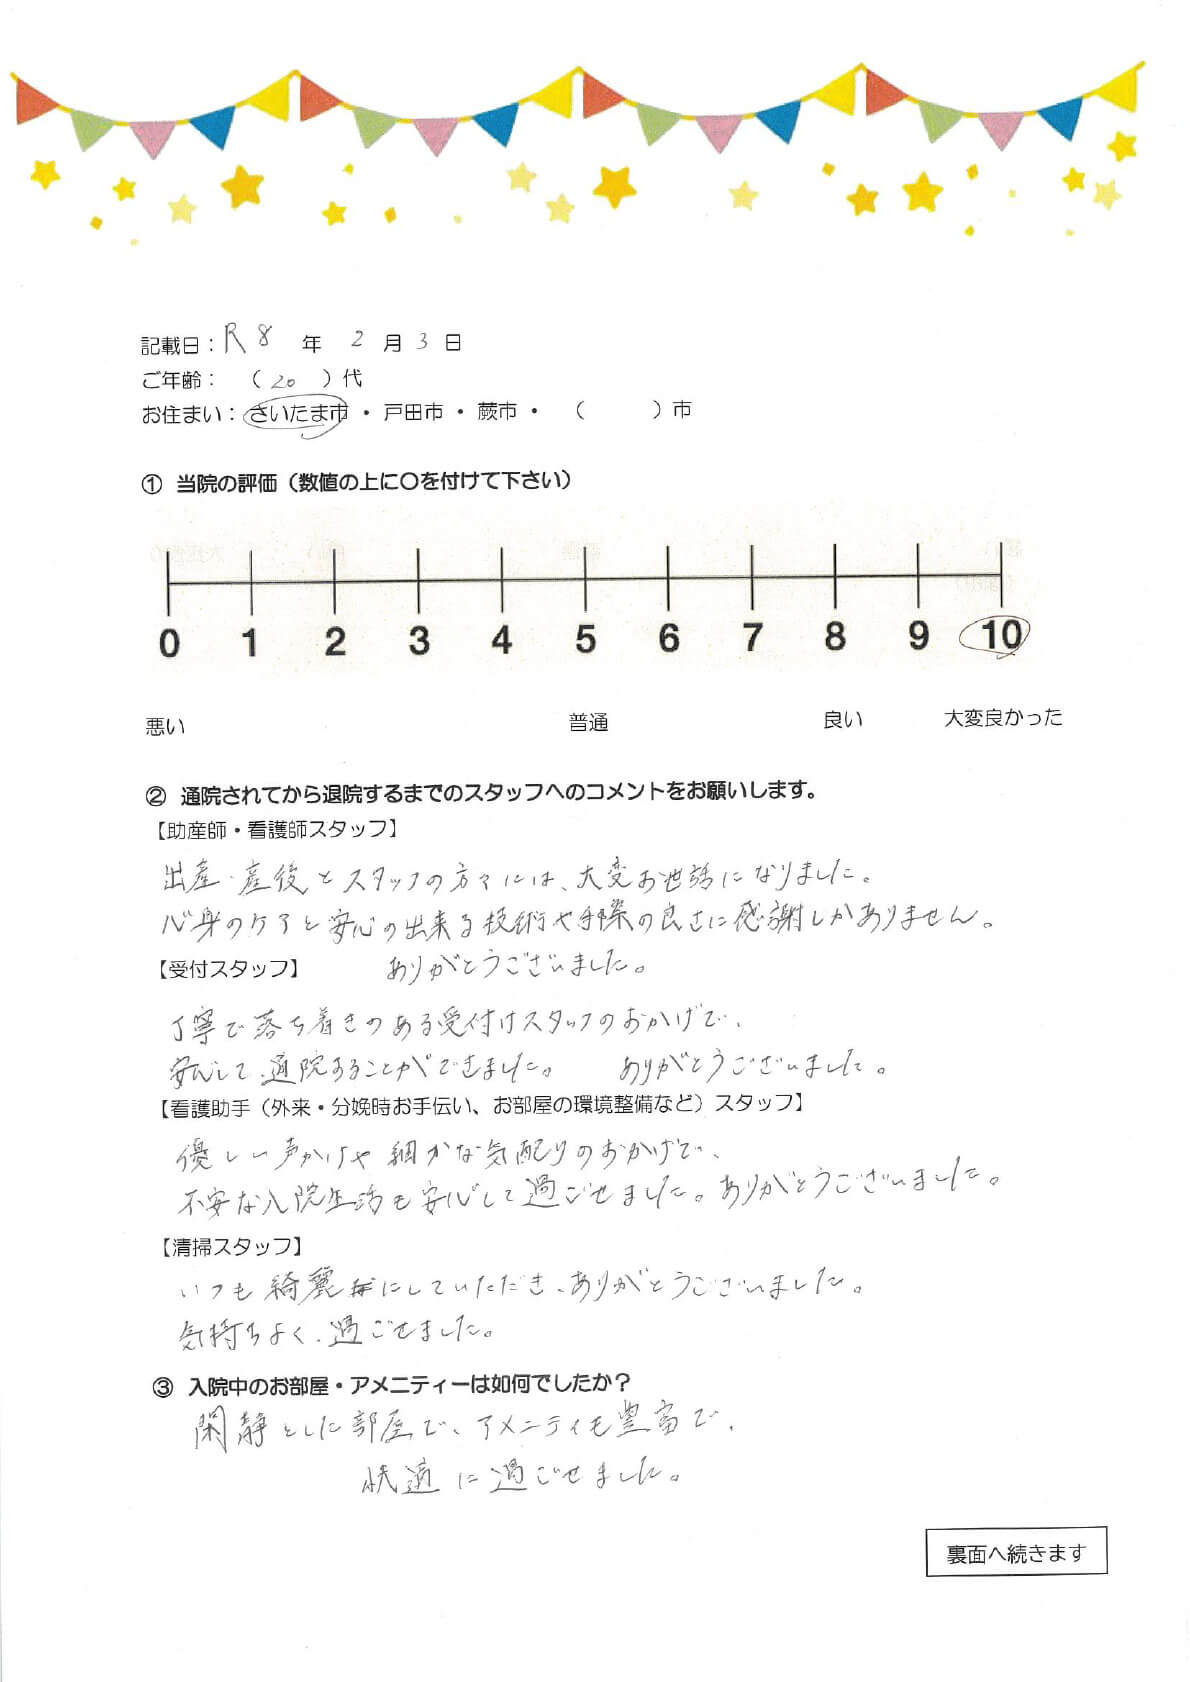 記載日：R8 年 2 月 3 日
ご年齢： （ 20 ）代
お住まい：さいたま市・戸田市・蕨市・（ ）市
① 当院の評価（数値の上に〇を付けて下さい）
0 1 2 3 4 5 6 7 8 9 10
悪い 普通 良い 大変良かった
② 通院されてから退院するまでのスタッフへのコメントをお願いします。
【助産師・看護師スタッフ】
出産・産後とスタッフの方々には、大変お世話になりました。
心身のケアと安心の出来る技術や手際の良さに感謝しかありません。
【受付スタッフ】 ありがとうございました。
丁寧で落ち着きのある受付けスタッフのおかげで、
安心して、通院することができました。 ありがとうございました。
【看護助手（外来・分娩時お手伝い、お部屋の環境整備など）スタッフ】
優しい声かけや細かな気配りのおかげで、
不安な入院生活も安心して過ごせました。ありがとうございました。
【清掃スタッフ】
いつも綺麗にしていただき、ありがとうございました。
気持ちよく、過ごせました。
③ 入院中のお部屋・アメニティーは如何でしたか？
閑静とした部屋で、アメニティも豊富で、
快適に過ごせました。
裏面へ続きます